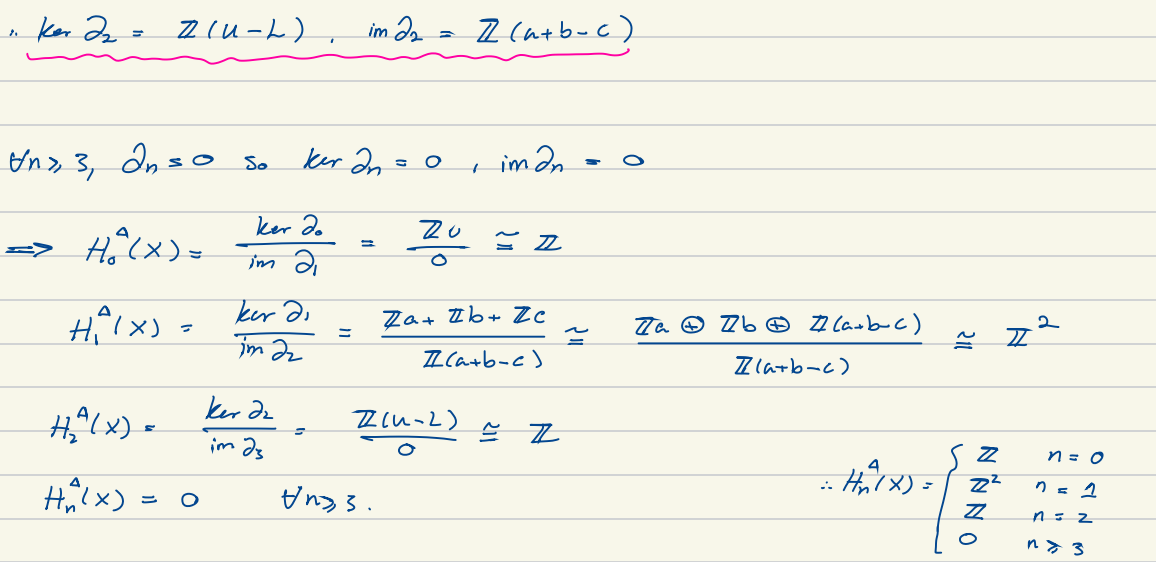 ∴ ker ∂₂ = ℤ(U-L), im ∂₂ = ℤ(a+b-c)
∀n≥3, ∂ₙ=0 so ker ∂ₙ = 0, im ∂ₙ = 0
⟹ H₀^Δ(X) = ker ∂₀ / im ∂₁ = ℤv / 0 ≅ ℤ
H₁^Δ(X) = ker ∂₁ / im ∂₂ = ℤa + ℤb + ℤc / ℤ(a+b-c) ≅ ℤa ⊕ ℤb ⊕ ℤ(a+b-c) / ℤ(a+b-c) ≅ ℤ²
H₂^Δ(X) = ker ∂₂ / im ∂₃ = ℤ(U-L) / 0 ≅ ℤ
Hₙ^Δ(X) = 0 ∀n≥3.
∴ Hₙ^Δ(X) = { ℤ n = 0
ℤ² n = 1
ℤ n = 2
0 n ≥ 3